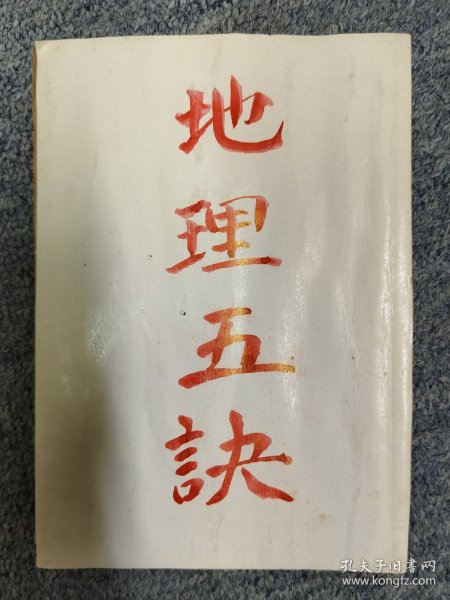 地理五訣
孔夫子旧书网
www.kongfz.com